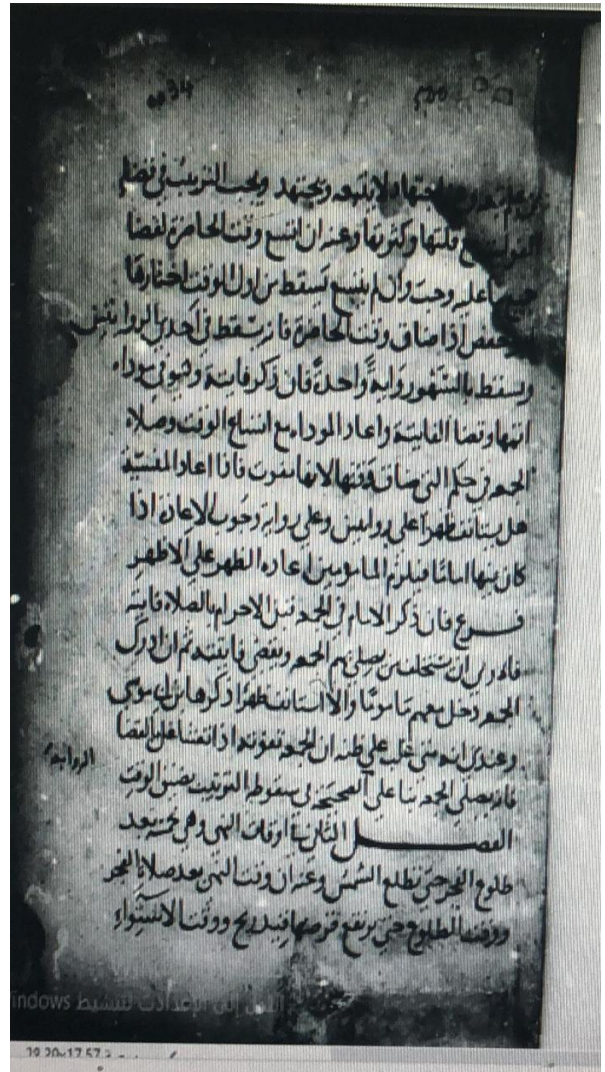 34
ويجتهد ويجب الترتيب في قضاء
الفوائت مع قلتها وكثرتها وعنه ان اتسع وقت الحاضرة لقضا
جميع ما عليه وجبت وان لم يتسع سقط من اول الوقت اختارها
ابو حفص اذا ضاق وقت الحاضرة فانه يسقط في احدي الروايتين
ويسقط بالشهور رواية واحدة فان ذكر فايتة وهو في موداه
اتمها وقضا الفايتة واعاد الموداه مع اتساع الوقت وصلاه
الجمعه في حكم التي ضاق وقتها لانها تفوت فاذا اعاد المقضية
هل يستانف ظهرا علي روايتين وعلي رواية وجوب الاعادة اذا
كان فيها اماما فيلزم المامومين اعاده الظهر علي الاظهر
فرع فان ذكر الامام في الجمعه قبل الاحرام بالصلاه فايته
فله ان يستخلف من يصلي بهم الجمعه ويقضي فايتته ثم ان ادرك
الجمعه دخل معهم ماموما والا استانف ظهرا ذكرها بن ابي موسي
وعندي انه متي غلب علي ظنه ان الجمعه تفوته اذا تشاغل بالقضا
الرواية
فانه يصلي الجمعه بنا علي الصحيحة في سقوط الترتيب بضيق الوقت
الفصل الثاني في اوقات النهي وهي خمسه بعد
طلوع الفجر حتي تطلع الشمس وعنه ان وقت النهي بعد صلاة الفجر
ووقت الطلوع حتي يرتفع قرصها قيد رمح ووقت الاستواء
انتقل إلى الإعدادات لتنشيط Windows